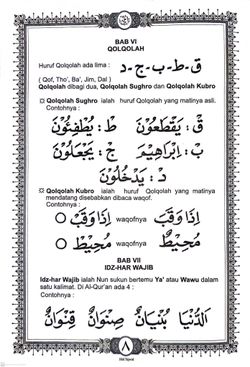 BAB VI
QOLQOLAH
Huruf Qolqolah ada lima : ق - ط - ب - ج - د
( Qof, Tho', Ba', Jim, Dal )
Qolqolah dibagi dua, Qolqolah Sughro dan Qolqolah Kubro
Qolqolah Sughro ialah huruf Qolqolah yang matinya asli.
Contohnya :
ق : يَقْطَعُوْنَ ط : يُطْفِئُوْنَ
ب : اِبْرَاهِيْمَ ج : يَجْعَلُوْنَ
د : يَدْخُلُوْنَ
Qolqolah Kubro ialah huruf Qolqolah yang matinya
mendatang disebabkan dibaca waqof.
Contohnya :
اِذَا وَقَبَ waqofnya اِذَا وَقَبْ
مُحِيْطٌ waqofnya مُحِيْطْ
BAB VII
IDZ-HAR WAJIB
Idz-har Wajib ialah Nun sukun bertemu Ya' atau Wawu dalam
satu kalimat. Di Al-Qur'an ada 4 :
Contohnya :
اَلدُّنْيَا بُنْيَانٌ صِنْوَانٌ قِنْوَانٌ
٨